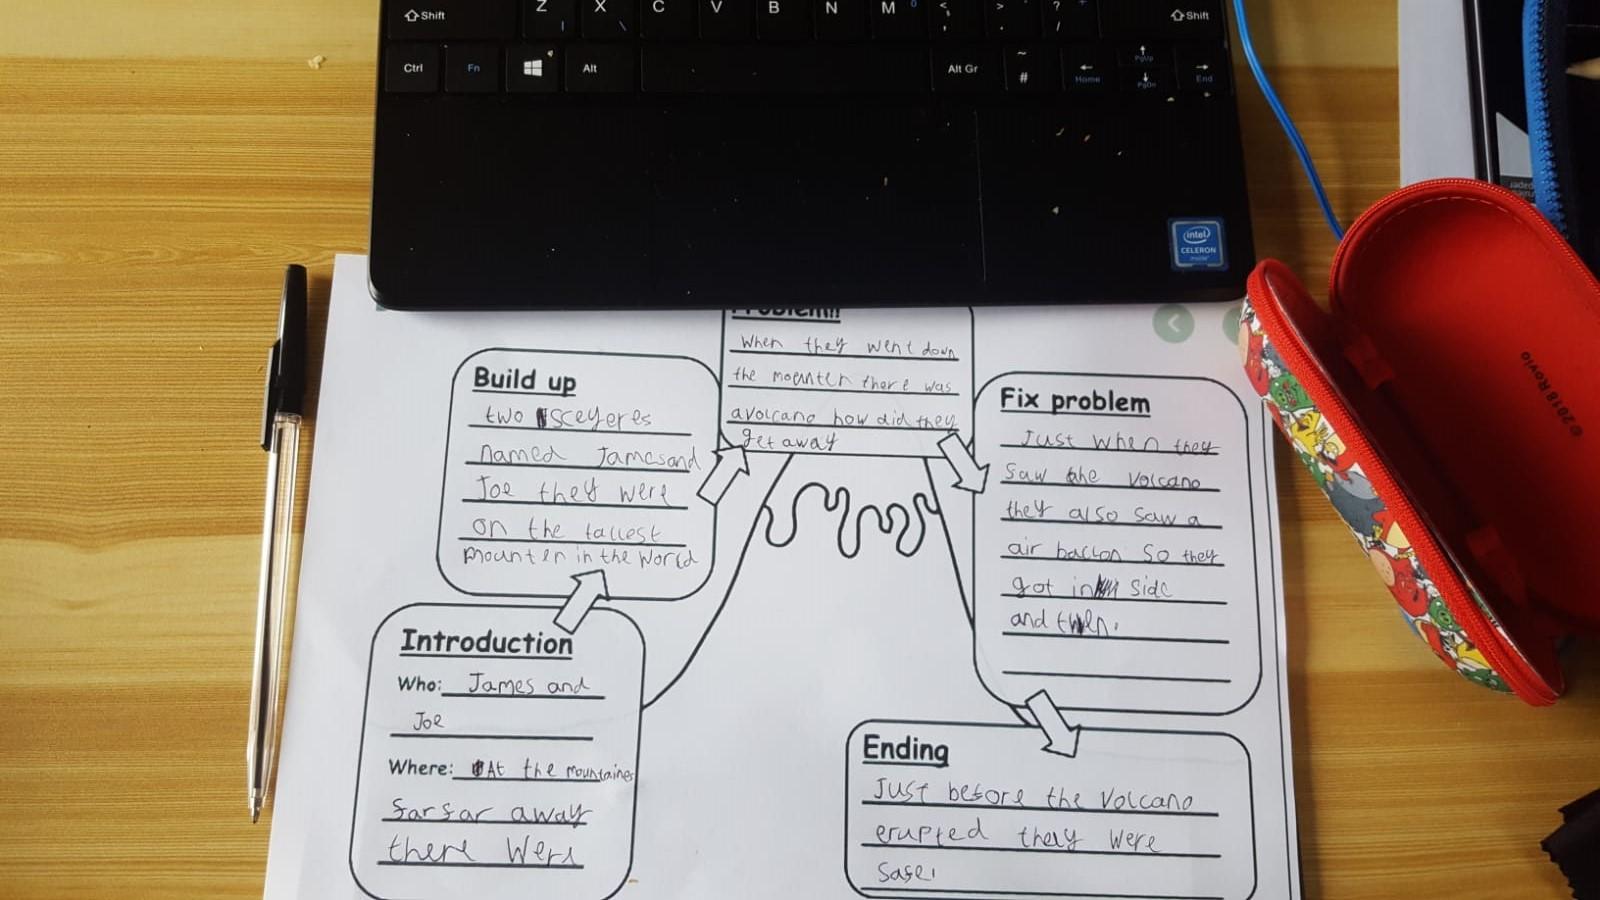 Shift Z X C V B N M < > ? Shift
Ctrl Fn Alt Alt Gr ~ # Home PgUp PgDn End
intel
CELERON
inside
©2018 Rovio
Problem!!
When they went down
the mounten there was
a volcano how did they
get away
Build up
two sceyeres
named James and
Joe they were
on the tallest
mounten in the world
Fix problem
Just when they
saw the volcano
they also saw a
air balloon so they
got in side
and
Introduction
Who: James and
Joe
Where: At the mountaines
far far away
there were
Ending
Just before the volcano
erupted they were
safe.